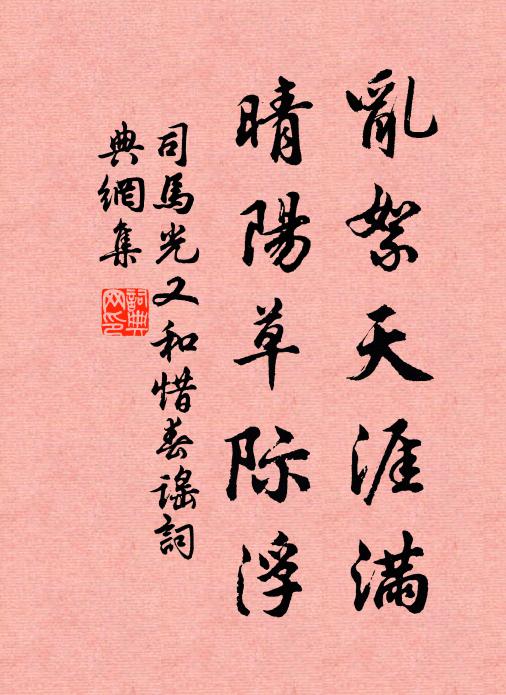 亂絮天涯滿
晴陽草際浮
司馬光又和惜春謠詞
典網集
詞典
网印